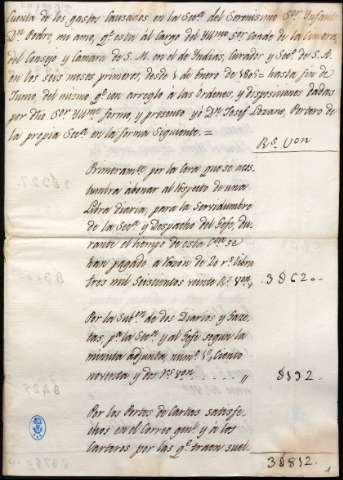 Cuenta de los gastos causados en la Sec.ª del Serenisimo S.or Infante
D.n Pedro, mi amo, q.e está al cargo del Yll.mo S.or Conde de la
del Consejo y Camara de S. A. en el de Indias, Curador y Sec.º de S. A.
en los seis meses primeros, desde 1 de Enero de 1805 hasta fin de
Junio, del mismo q.e con arreglo à las Ordenes, y disposiciones dadas
por dho S.or Yll.mo forma y presenta yo D.n Josef Lozano, Portero de
la propia Sec.ª en la forma Siguiente. =
R.s Von
Primeram.te por la Cera que se acos-
tumbra à dar al respecto de una
Libra diaria, para la Servidumbre
de la Sec.ª y Despacho del Gefe, du-
rante el tiempo de esta se
han pagado a razon de 20 r.s libra
tres mil Seiscientos veinte R.s von,
3862..
Por la Sub.on de dos Diarios y Gaze-
tas, p.a la Sec.ª y al Gefe segun la
minuta adjunta, num.º 1º, Ciento
noventa y dos r.s von
8192.
Por los Portes de Cartas satisfe-
chos en el Correo gen.l y a los
Carteros por las q.e traen suel-
38812.